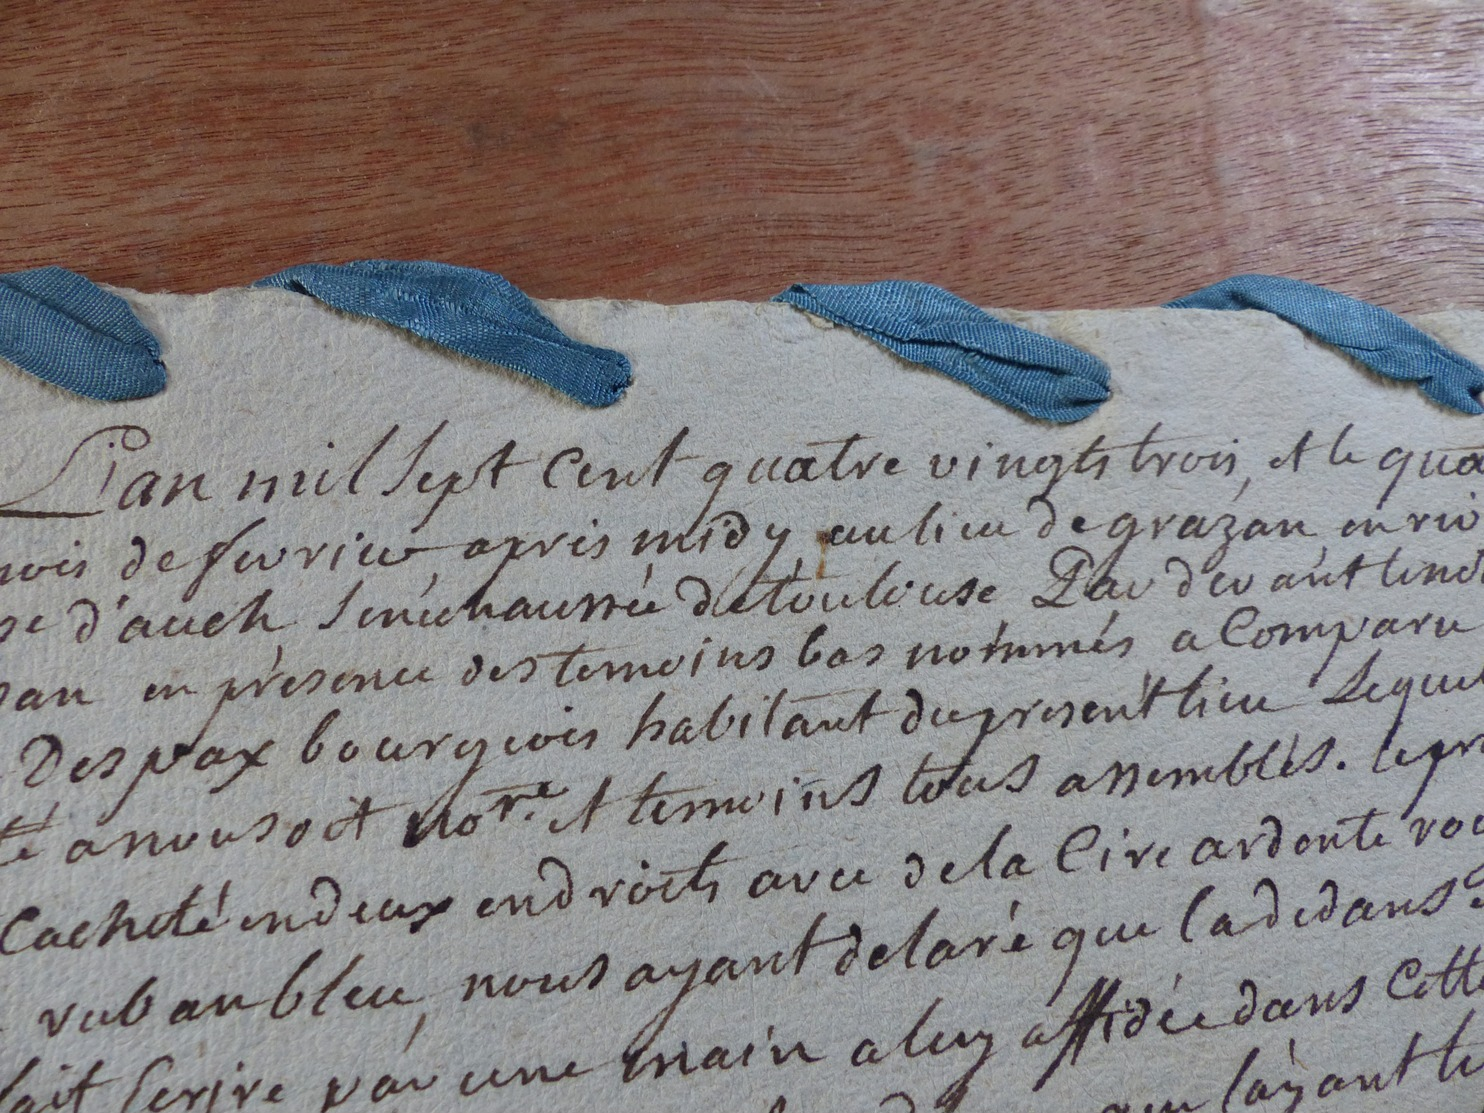 L'an mil sept cent quatre vingts trois, et le qua
mois de fevrier apres midy au lieu de grazan en riv
se d'auch senechaussée de toulouse Par devant le no
san en présence des temoins bas nommés a Comparu
Despax bourgeois habitant du present lieu Lequel
té a nous dit no.re et temoins tous assemblés. le pr
Cacheté en deux endroits avec de la Cire ardente rou
ruban bleu, nous ayant delaré que la dedans
fait Ecrire par une main a luy affidée dans Cette
layant